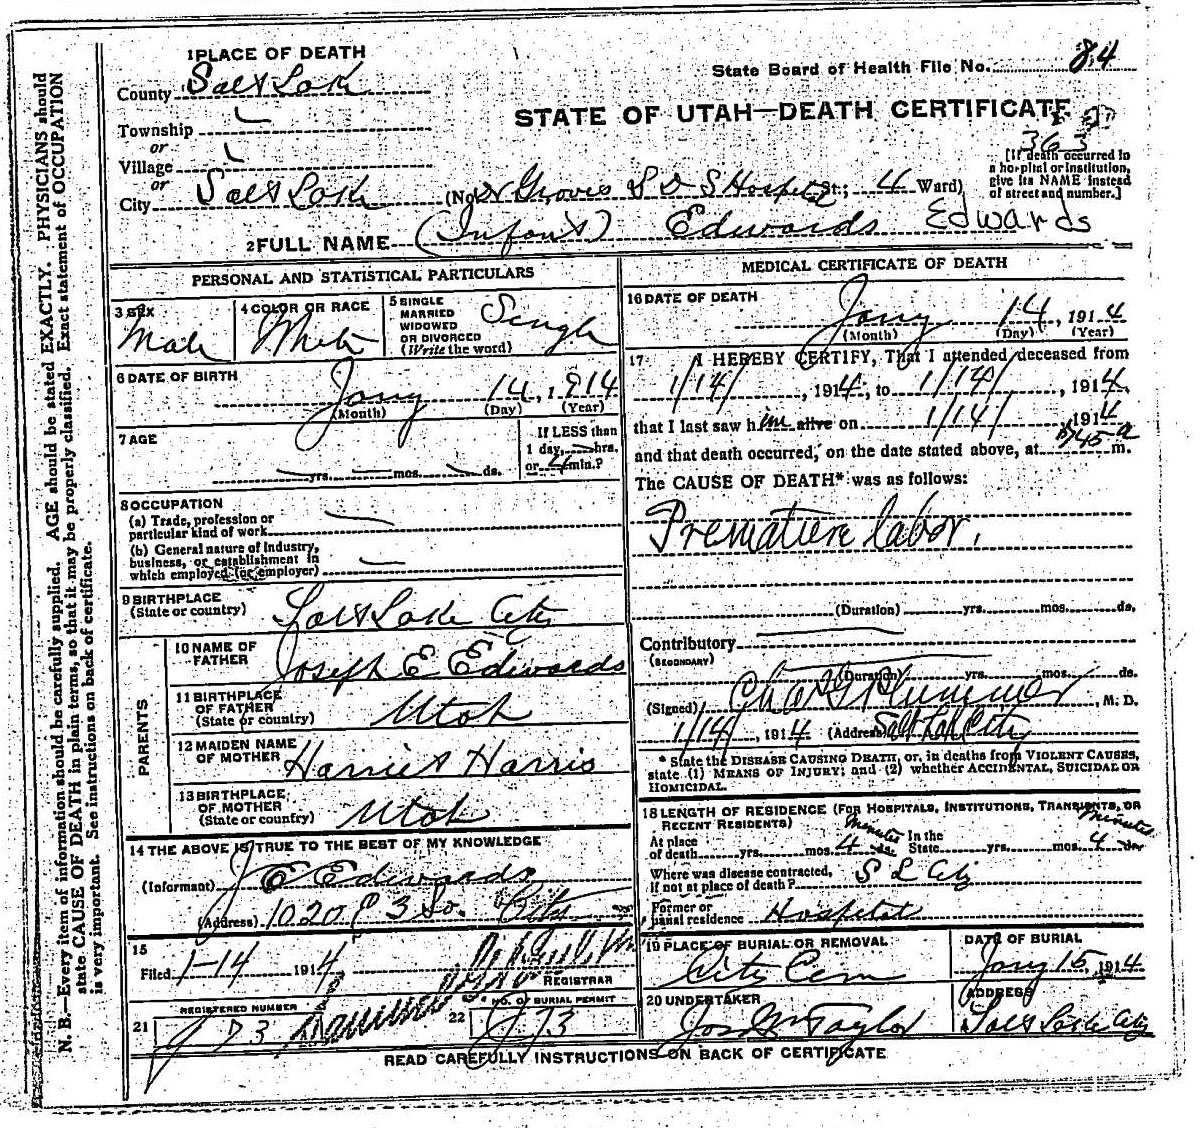 N. B.—Every item of information should be carefully supplied. AGE should be stated EXACTLY. PHYSICIANS should
state CAUSE OF DEATH in plain terms, so that it may be properly classified. Exact statement of OCCUPATION
is very important. See instructions on back of certificate.
1 PLACE OF DEATH
State Board of Health File No. 84
County Salt Lake
STATE OF UTAH—DEATH CERTIFICATE
Township
or
Village
or
363
[If death occurred in
a hospital or institution,
give its NAME instead
of street and number.]
City Salt Lake (No. Groves L D S Hospital St.; 4 Ward)
2 FULL NAME (Infant) Edwards Edwards
PERSONAL AND STATISTICAL PARTICULARS
3 SEX
Male
4 COLOR OR RACE
White
5 SINGLE
MARRIED
WIDOWED
OR DIVORCED
(Write the word)
Single
6 DATE OF BIRTH
Jany 14, 1914
(Month) (Day) (Year)
7 AGE
yrs. mos. ds.
If LESS than
1 day, hrs.
or 4 min.?
8 OCCUPATION
(a) Trade, profession or
particular kind of work
(b) General nature of Industry,
business, or establishment in
which employed (or employer)
9 BIRTHPLACE
(State or country) Salt Lake City
PARENTS
10 NAME OF
FATHER Joseph E Edwards
11 BIRTHPLACE
OF FATHER
(State or country) Utah
12 MAIDEN NAME
OF MOTHER Harriet Harris
13 BIRTHPLACE
OF MOTHER
(State or country) Utah
14 THE ABOVE IS TRUE TO THE BEST OF MY KNOWLEDGE
(Informant) J E Edwards
(Address) 1020 E 3 So. City
15
Filed 1-14 1914
REGISTRAR
REGISTERED NUMBER
21 J 73
22 NO. OF BURIAL PERMIT
J 73
MEDICAL CERTIFICATE OF DEATH
16 DATE OF DEATH
Jany 14, 1914
(Month) (Day) (Year)
17 I HEREBY CERTIFY, That I attended deceased from
1/14/, 1914, to 1/14/, 1914,
that I last saw him alive on 1/14/ 1914
and that death occurred, on the date stated above, at 45 a m.
The CAUSE OF DEATH* was as follows:
Premature labor.
(Duration) yrs. mos. ds.
Contributory
(SECONDARY)
(Duration) yrs. mos. ds.
(Signed) Chas G Plummer, M. D.
1/14/, 1914 (Address) Salt Lake City
* State the DISEASE CAUSING DEATH, or, in deaths from VIOLENT CAUSES,
state (1) MEANS OF INJURY; and (2) whether ACCIDENTAL, SUICIDAL OR
HOMICIDAL.
18 LENGTH OF RESIDENCE (FOR HOSPITALS, INSTITUTIONS, TRANSIENTS, OR
RECENT RESIDENTS)
minutes minutes
At place
of death yrs. mos. 4 ds. In the
State yrs. mos. 4 ds.
Where was disease contracted,
If not at place of death? S L City
Former or
usual residence Hospital
19 PLACE OF BURIAL OR REMOVAL
City Cem
DATE OF BURIAL
Jany 15, 1914
20 UNDERTAKER
Jos Wm Taylor
ADDRESS
Salt Lake City
READ CAREFULLY INSTRUCTIONS ON BACK OF CERTIFICATE